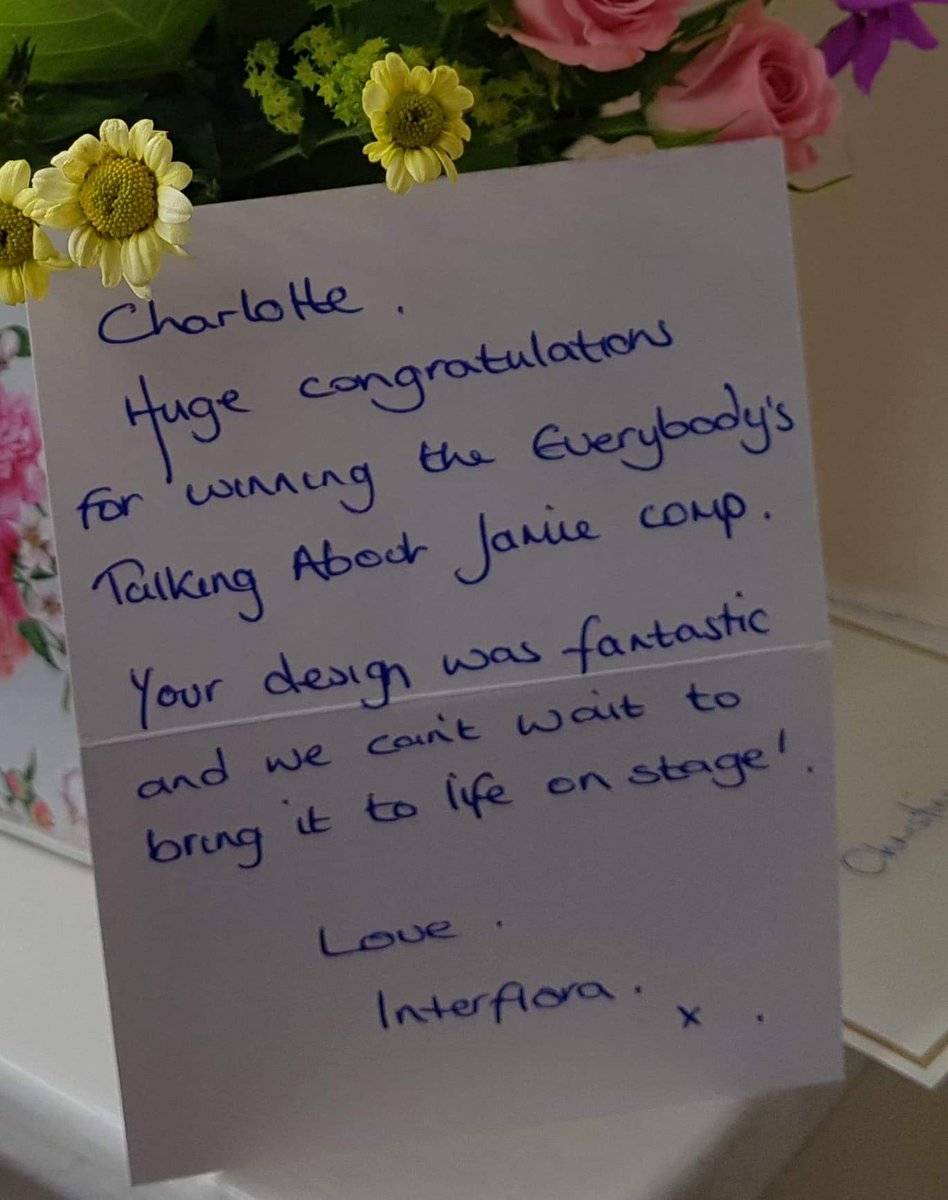 Charlotte.
Huge congratulations
for winning the Everybody's
Talking About Jamie comp.
Your design was fantastic
and we can't wait to
bring it to life on stage!.
Love.
Interflora.
x .